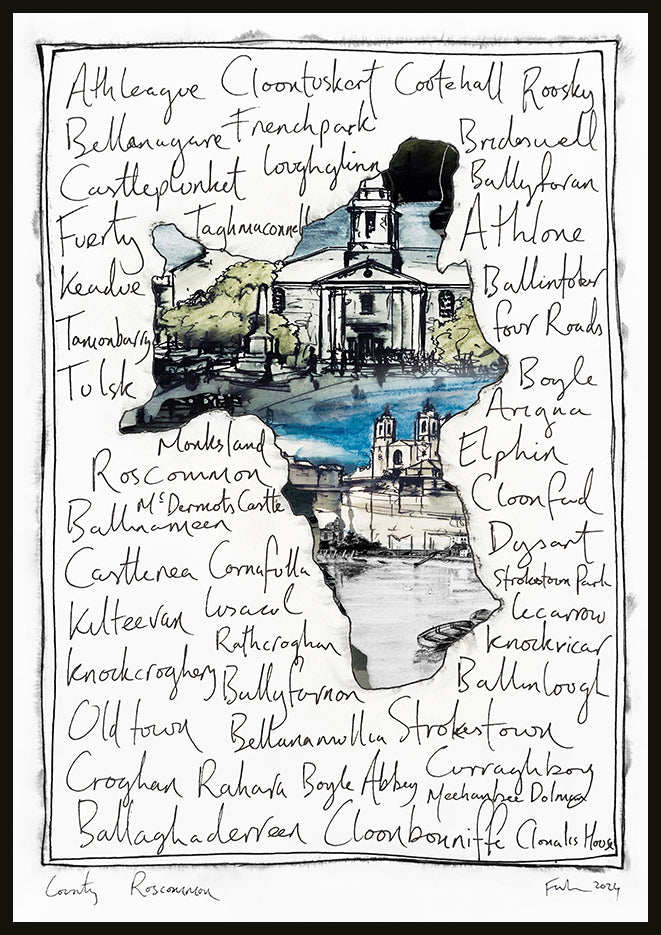 Athleague Cloontuskert Cootehall Roosky
Bellanagare Frenchpark Brideswell
Castleplunket Loughglinn Ballyforan
Fuerty Taghmaconnell Athlone
Keadue Ballintober
Tarmonbarry Four Roads
Tulsk Boyle
Arigna
Monksland Elphin
Roscommon Cloonfad
McDermots Castle
Ballinameen Dysart
Castlerea Cornafulla Strokestown Park
Kilteevan Lisacul Lecarrow
Rathcroghan Knockvicar
Knockcroghery Ballyfarnon Ballinlough
Old town Bellanamullia Strokestown
Croghan Rahara Boyle Abbey Curraghboy
Meehambee Dolmen
Ballaghaderreen Cloonbonniffe Clonalis House
County Roscommon 2024